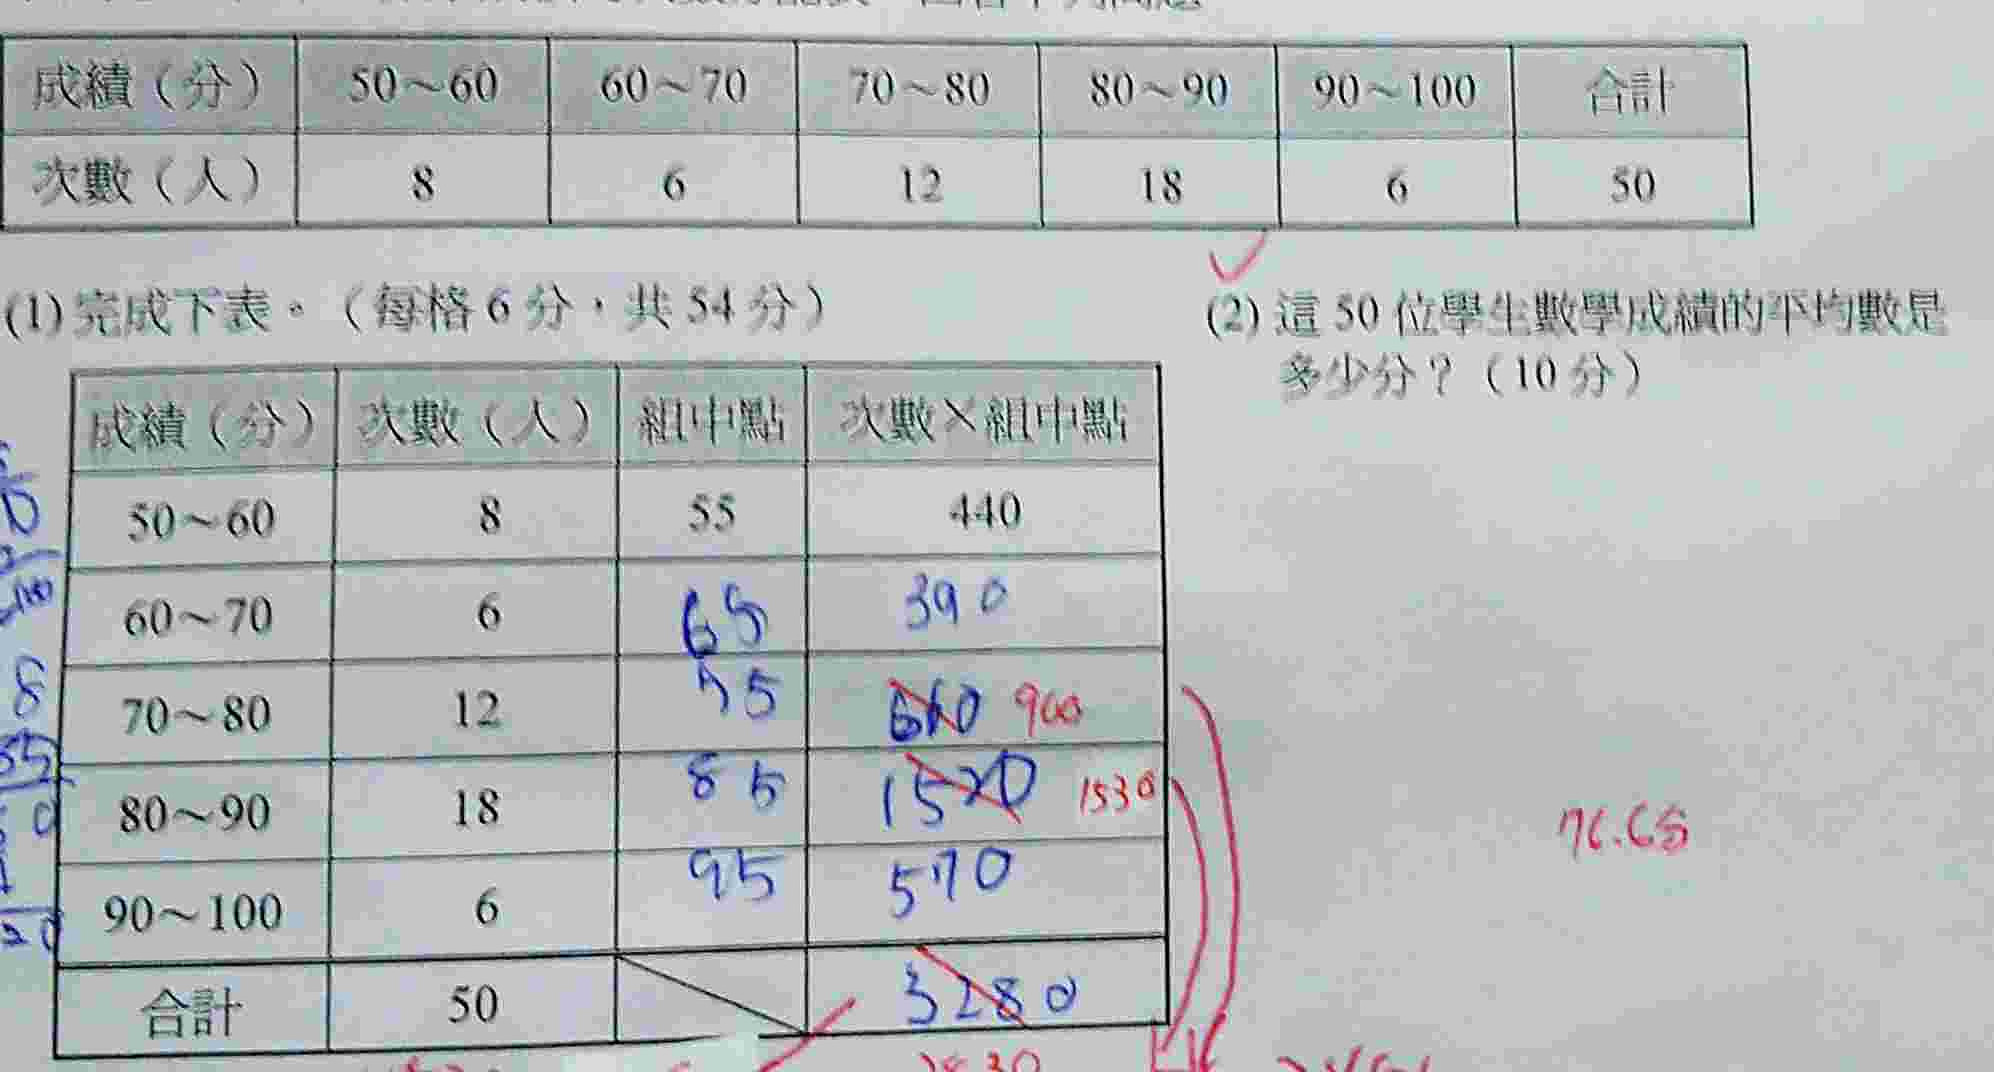 成績（分） 50～60 60～70 70～80 80～90 90～100 合計
次數（人） 8 6 12 18 6 50
(1) 完成下表。（每格 6 分，共 54 分）
成績（分） 次數（人） 組中點 次數×組中點
50～60 8 55 440
60～70 6 65 390
70～80 12 75 660 900
80～90 18 85 1520 1530
90～100 6 95 570
合計 50 3280
(2) 這 50 位學生數學成績的平均數是
多少分？（10 分）
76.6分